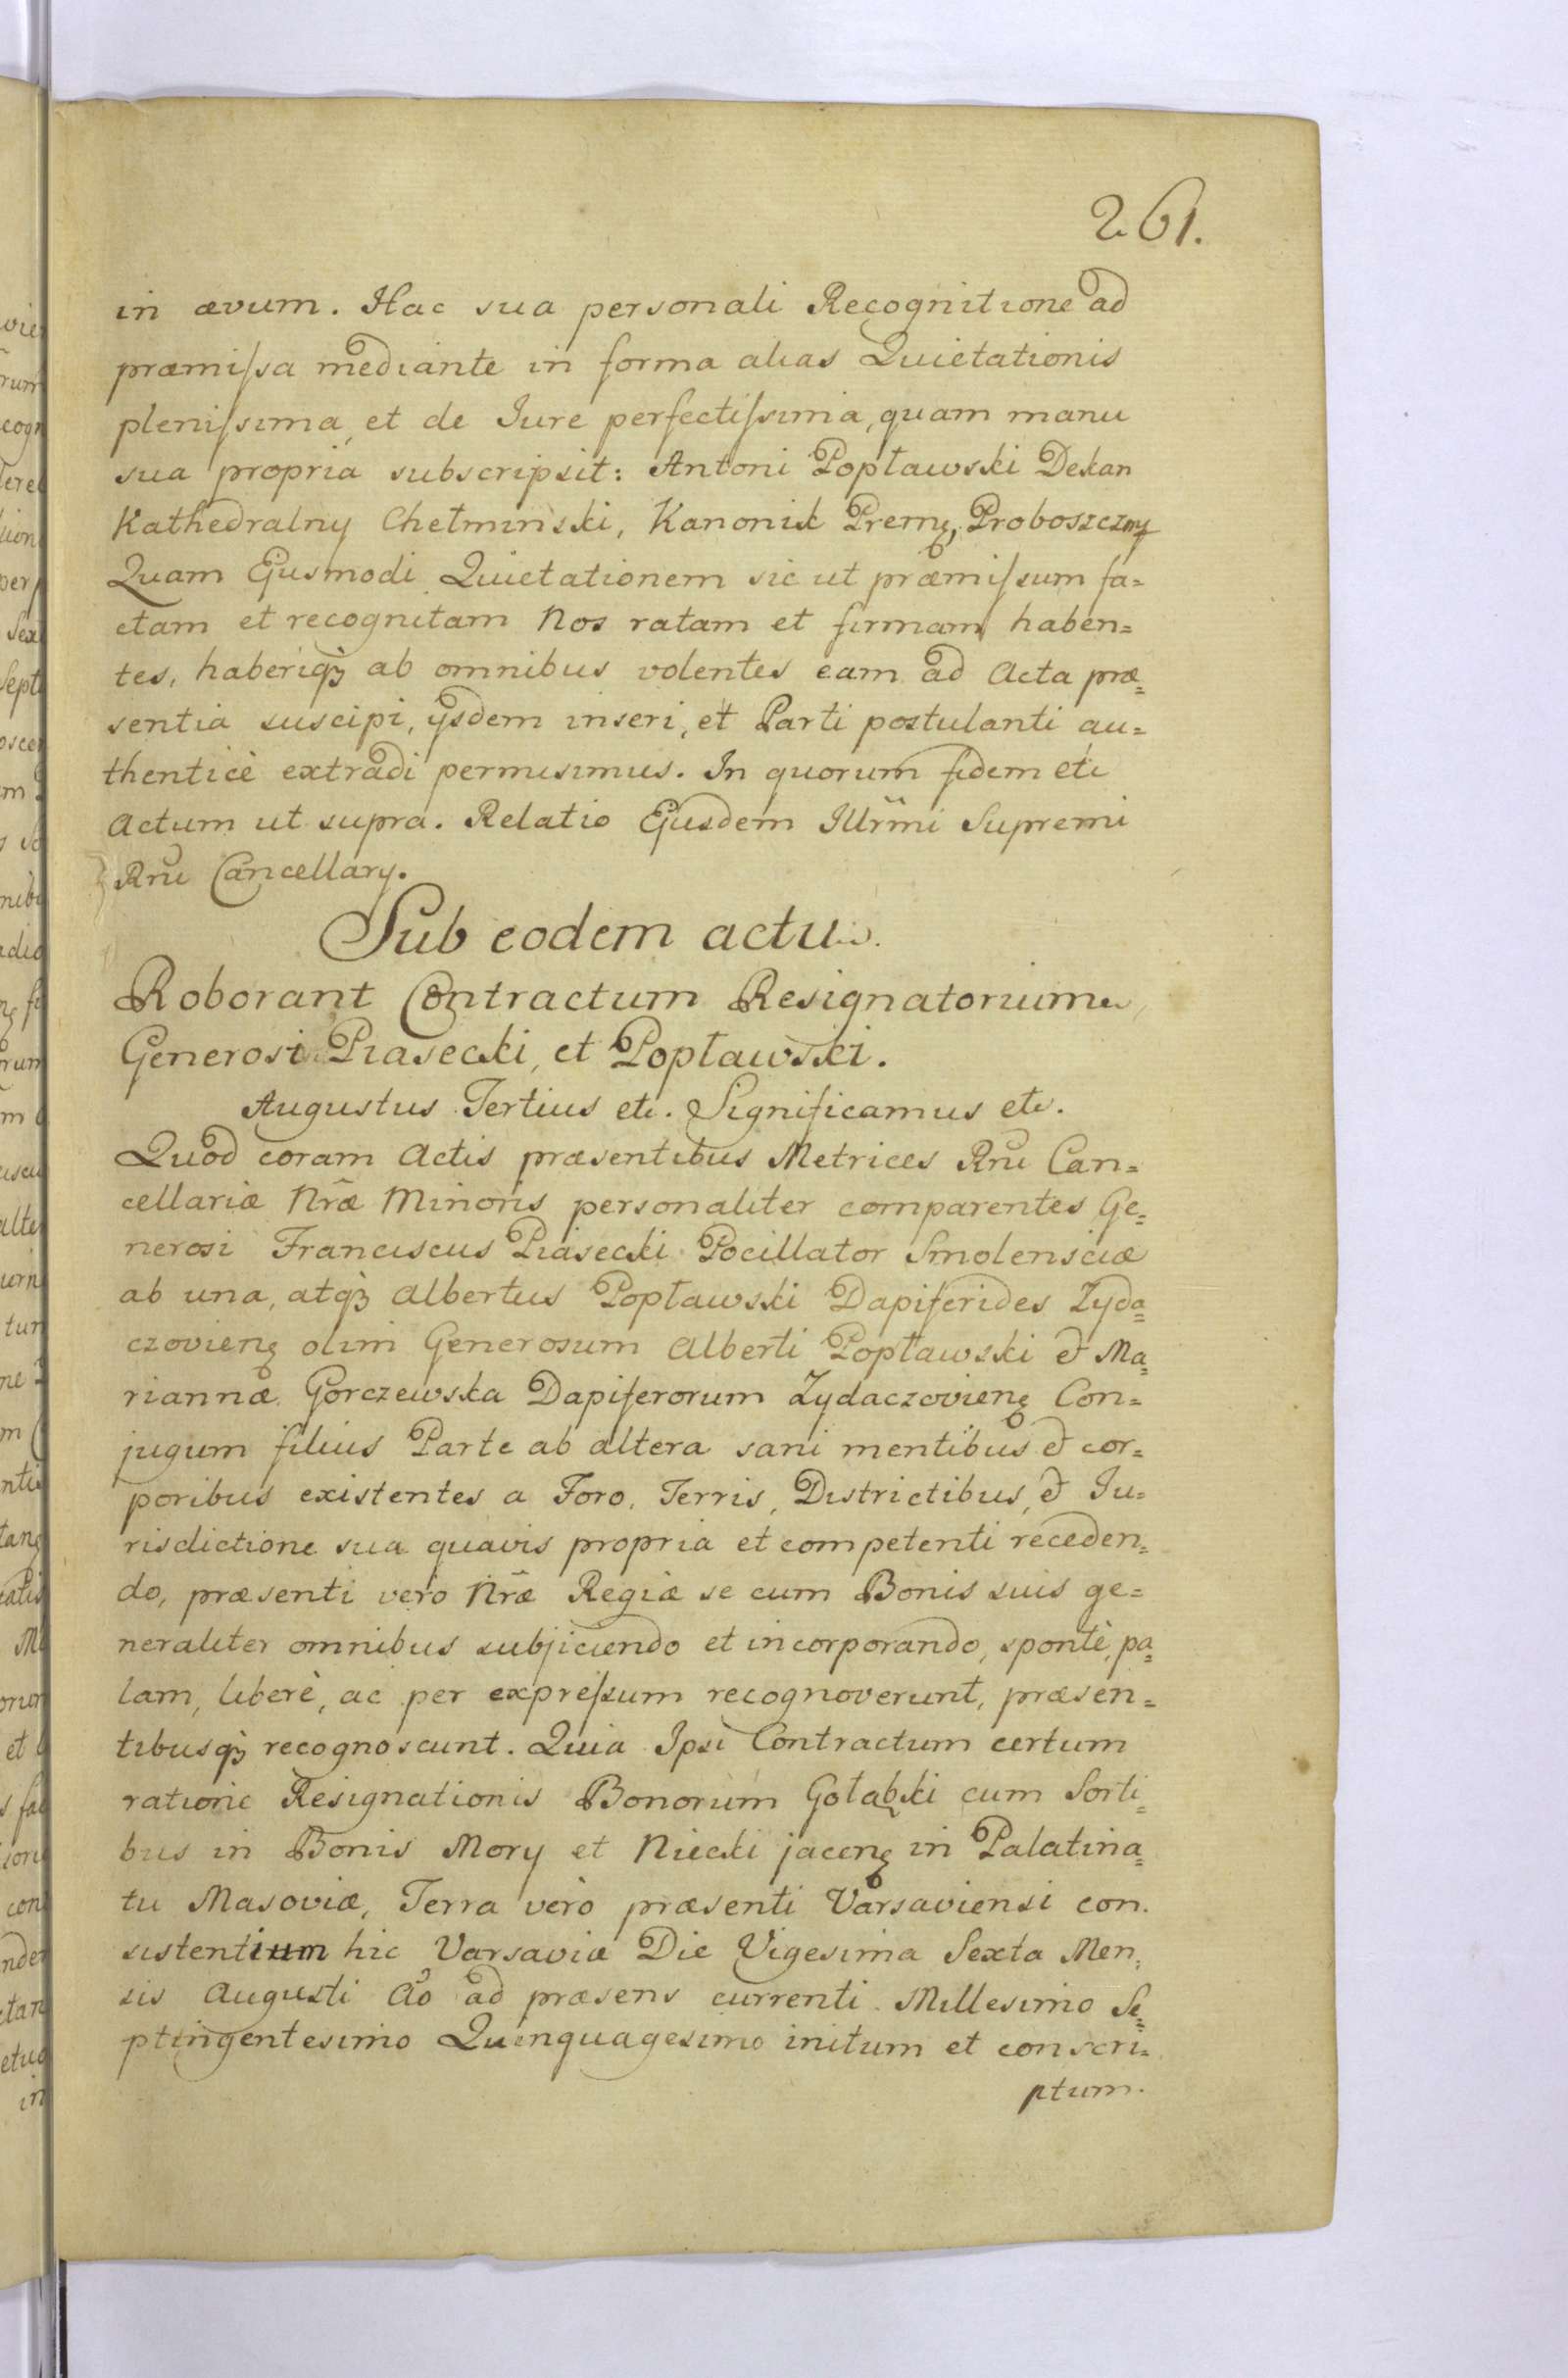 261.
in ævum. Hac sua personali Recognitione ad
præmiſsa mediante in forma alias Quietationis
pleniſsima, et de Jure perfectiſsima, quam manu
sua propria subscripsit: Antoni Popławski Dekan
Kathedralny Chełminski, Kanonik Premꝫ, Proboszcz mp
Quam Ejusmodi Quietationem sic ut præmiſsum fa=
ctam et recognitam Nos ratam et firmam haben=
tes, haberiqꝫ ab omnibus volentes eam ad Acta præ=
sentia suscipi, ijsdem inseri, et Parti postulanti au=
thenticè extradi permisimus. In quorum fidem etc
Actum ut supra. Relatio Ejusdem Illr̃mi Supremi
Rnĩ Cancellarÿ.
Sub eodem actu.
Roborant Contractum Resignatorium
Generosi Piasecki, et Popławski.
Augustus Tertius etc. Significamus etc.
Quod coram Actis præsentibus Metrices Rnĩ Can=
cellariæ Nr̃æ Minoris personaliter comparentes Ge=
nerosi Franciscus Piasecki Pocillator Smolensciæ
ab una, atqꝫ Albertus Popławski Dapiferides Zyda=
czovienꝫ olim Generosum Alberti Popławski et Ma=
riannæ Gorczewska Dapiferorum Zydaczovienꝫ Con=
jugum filius Parte ab altera sani mentibus et cor=
poribus existentes a Foro, Terris, Districtibus, et Ju=
risdictione sua quavis propria et competenti receden=
do, præsenti vero Nr̃æ Regiæ se cum Bonis suis ge=
neraliter omnibus subjiciendo et incorporando, spontè, pa=
lam, liberè, ac per expreſsum recognoverunt, præsen=
tibusqꝫ recognoscunt. Quia Ipsi Contractum certum
ratione Resignationis Bonorum Gołąbki cum Sorti=
bus in Bonis Mory et Niecki jacenꝫ in Palatina=
tu Masoviæ, Terra verò præsenti Varsaviensi con.
sistentium hic Varsaviæ Die Vigesima Sexta Men=
sis Augusti Aõ ad præsens currenti Millesimo Se=
ptingentesimo Quinquagesimo initum et conscri=
ptum.